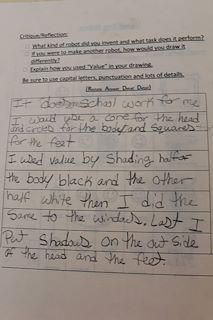 Critique/Reflection:
What kind of robot did you invent and what task does it perform?
If you were to make another robot, how would you draw it
differently?
Explain how you used "Value" in your drawing.
Be sure to use capital letters, punctuation and lots of details.
It does school work for me
I would use a cone for the head
and circles for the body and squares
for the feet
I used value by Shading half
the body black and the other
half white then I did the
Same to the windows. Last I
Put Shadows on the out side
of the head and the feet.